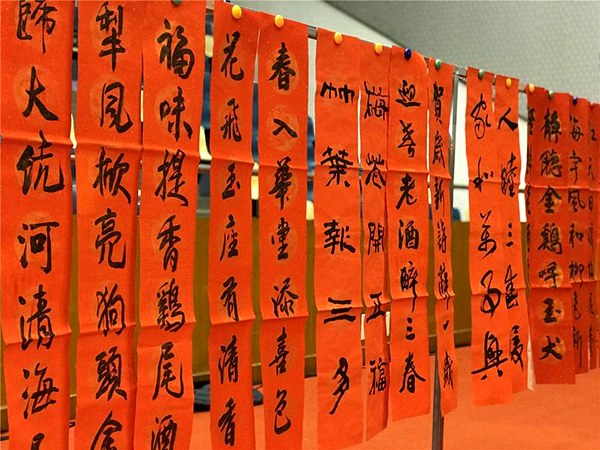 海宇風和柳
聽金鷄呼玉犬
人睦三生
家和萬事興
賀歲新詩
迎春老酒醉三春
梅花開五福
竹葉報三多
春入華堂添喜色
花飛玉座有清香
福味提香鷄尾酒
犁見掀亮狗頭金
大伉河清海